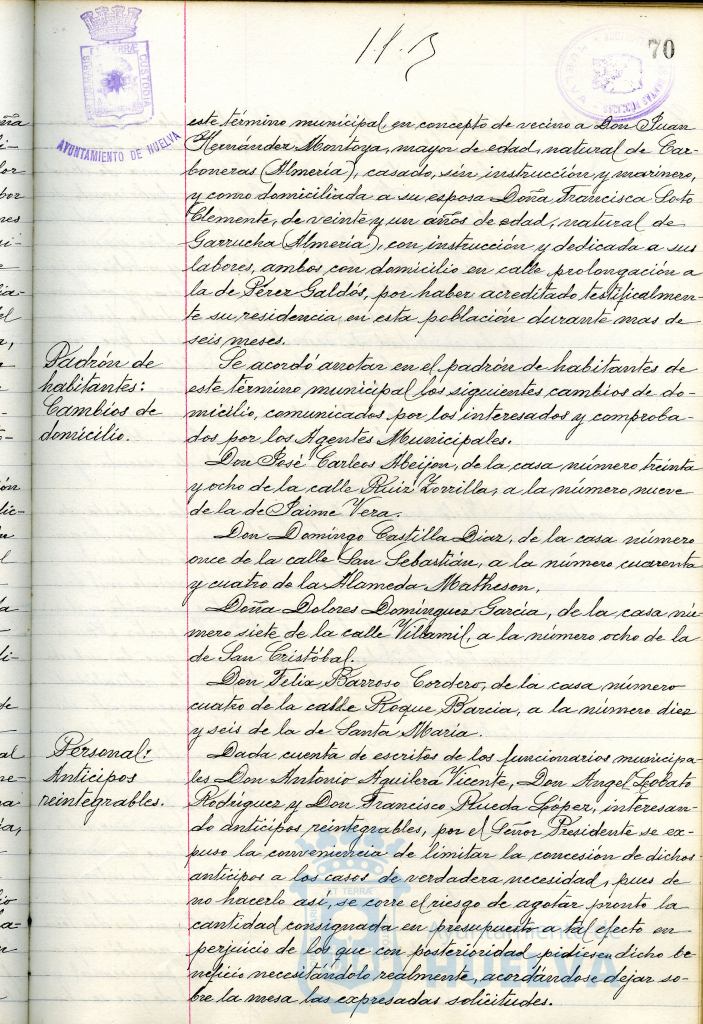 70
PORTUS MARIS ET TERRÆ CUSTODIA
AYUNTAMIENTO DE HUELVA
este término municipal, en concepto de vecino a Don Juan
Hernández Montoya, mayor de edad, natural de Car-
boneras (Almería), casado, sin instrucción y marinero,
y como domiciliada a su esposa Doña Francisca Soto
Clemente, de veinte y un años de edad, natural de
Garrucha (Almería), con instrucción y dedicada a sus
labores, ambos con domicilio en calle prolongación a
la de Pérez Galdós, por haber acreditado testificalmen-
te su residencia en esta población durante mas de
seis meses.
Padrón de
habitantes:
Cambios de
domicilio.
Se acordó anotar en el padrón de habitantes de
este término municipal los siguientes cambios de do-
micilio, comunicados por los interesados y comproba-
dos por los Agentes Municipales.
Don José Carlos Meijon, de la casa número treinta
y ocho de la calle Ruiz Zorrilla, a la número nueve
de la de Jaime Vera.
Don Domingo Castilla Diaz, de la casa número
once de la calle San Sebastián, a la número cuarenta
y cuatro de la Alameda Matheson.
Doña Dolores Domínguez García, de la casa nú-
mero siete de la calle Villamil, a la número ocho de la
de San Cristóbal.
Don Felix Barroso Cordero, de la casa número
cuatro de la calle Roque Barcia, a la número diez
y seis de la de Santa María.
Personal:
Anticipos
reintegrables.
Dada cuenta de escritos de los funcionarios municipa-
les Don Antonio Aguilera Vicente, Don Angel Lobato
Rodríguez y Don Francisco Rueda López, interesan-
do anticipos reintegrables, por el Señor Presidente se ex-
puso la conveniencia de limitar la concesion de dichos
anticipos a los casos de verdadera necesidad, pues de
no hacerlo así, se corre el riesgo de agotar pronto la
cantidad consignada en presupuesto a tal efecto en
perjuicio de los que con posterioridad pidiesen dicho be-
neficio necesitándolo realmente, acordándose dejar so-
bre la mesa las expresadas solicitudes.
Ayuntamiento de
HUELVA